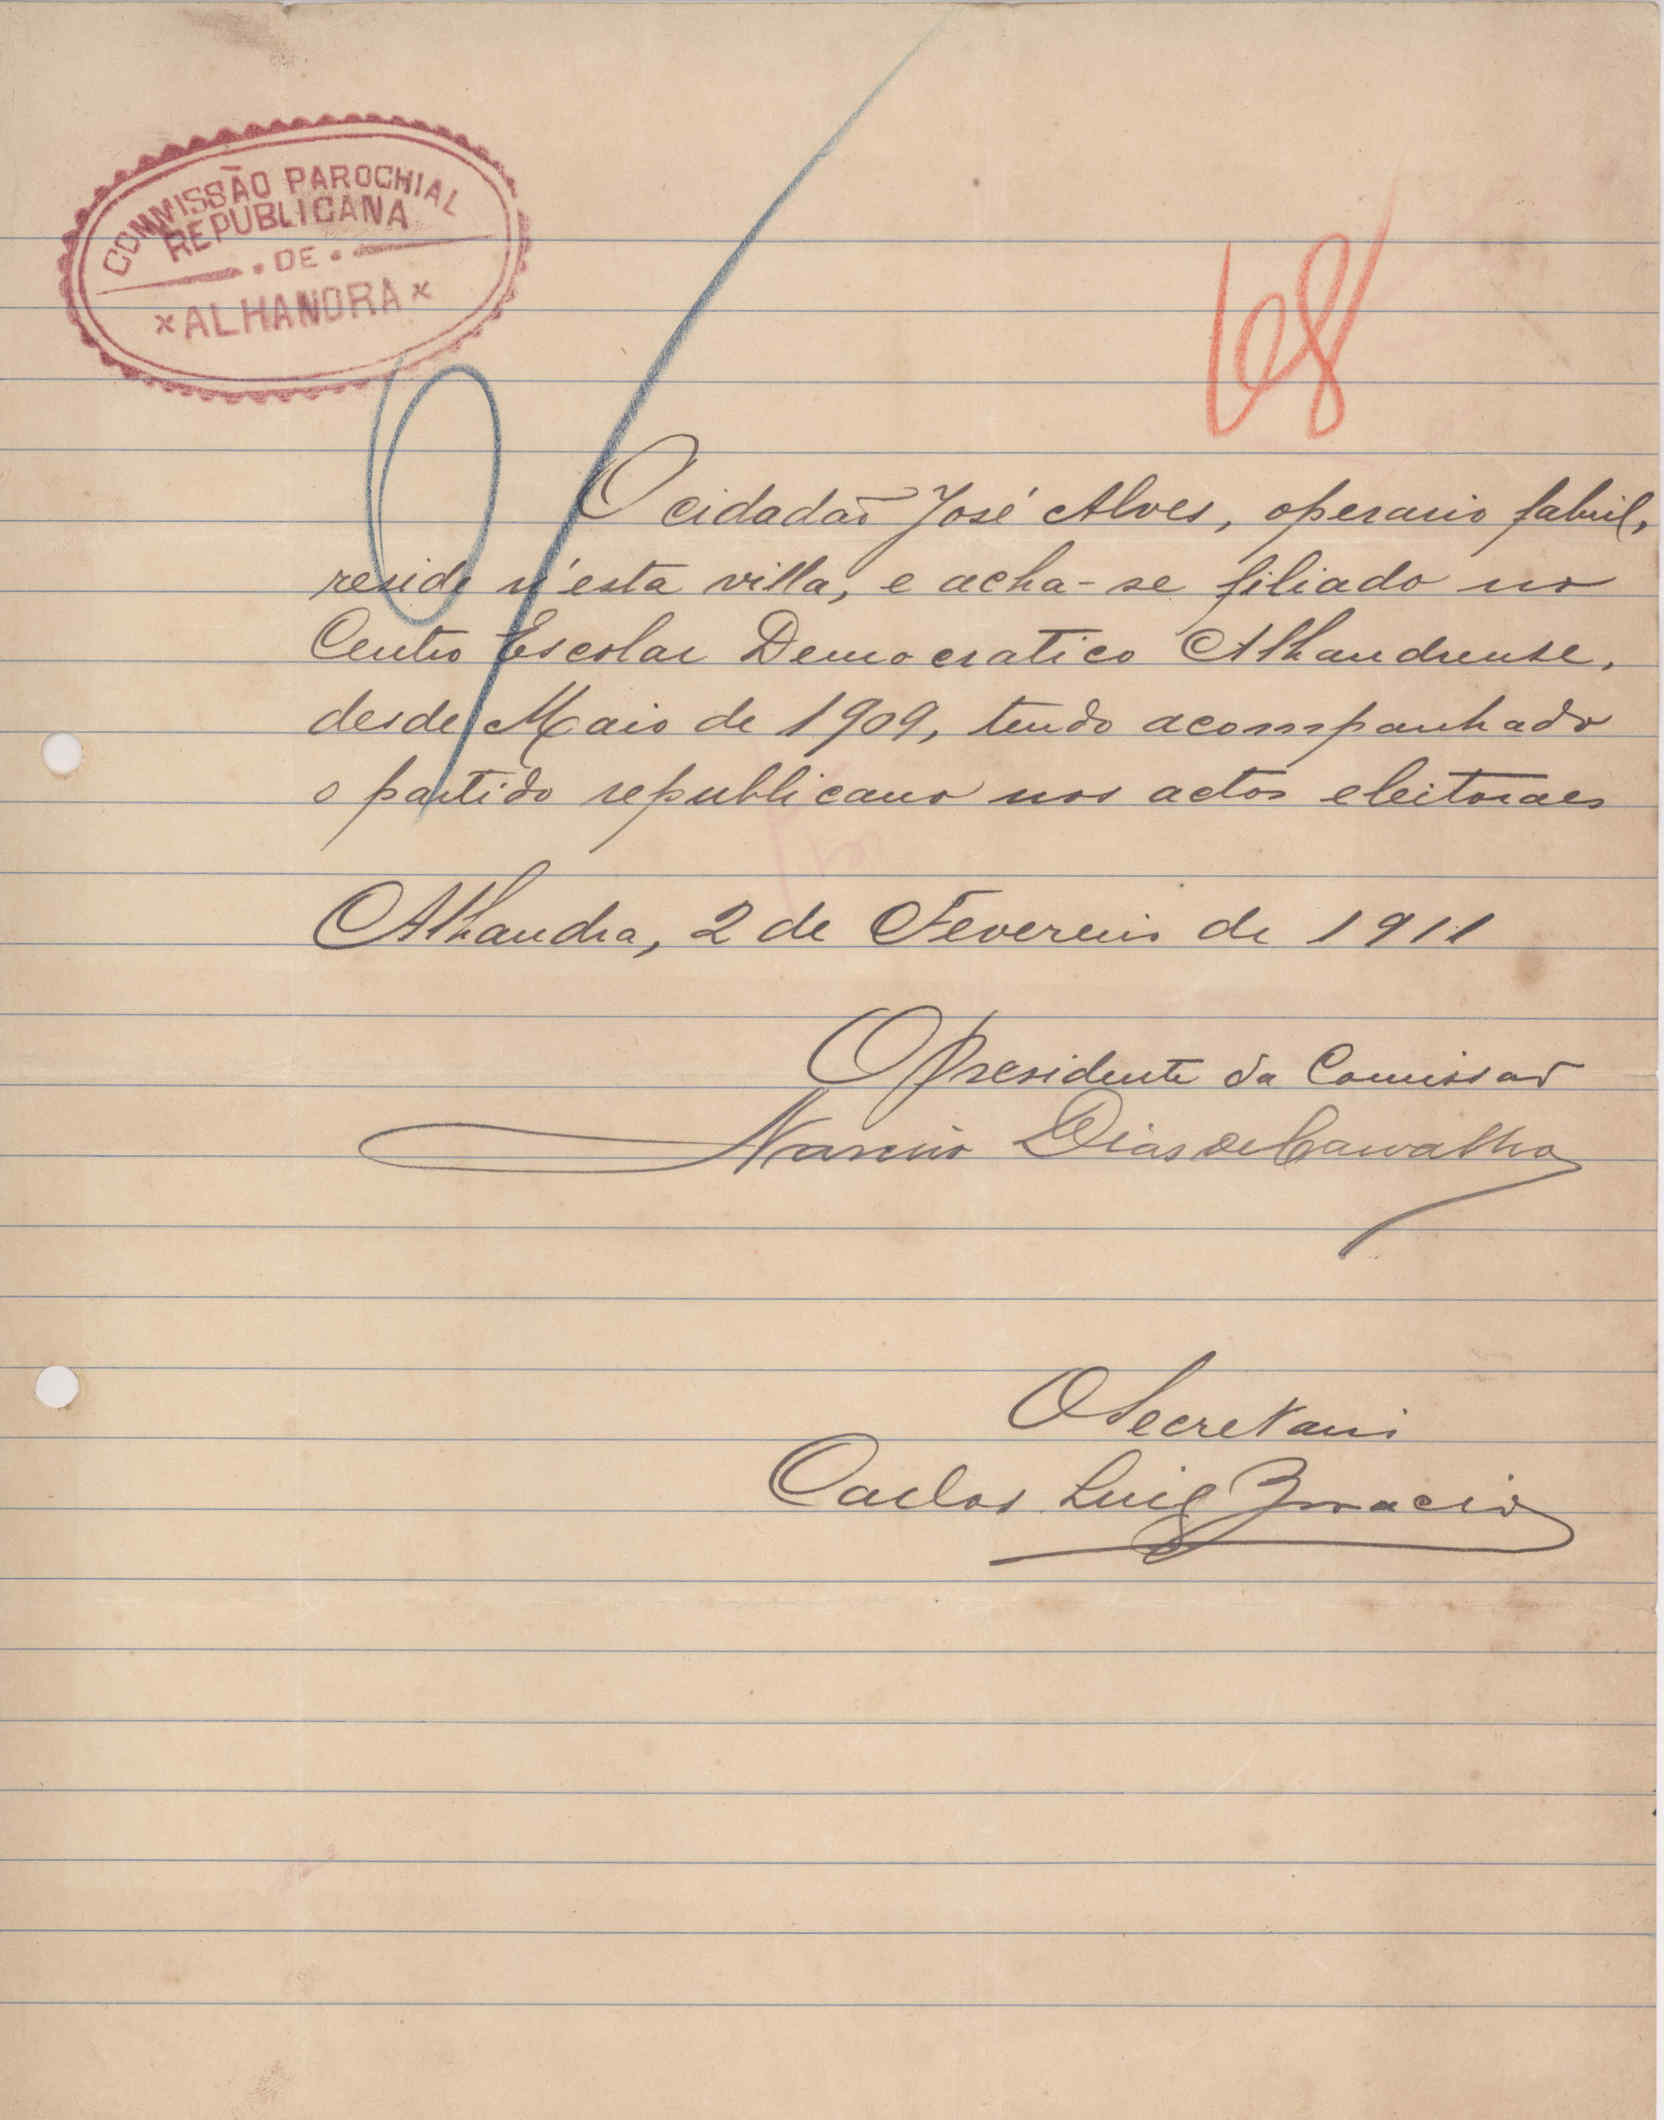 COMMISSÃO PAROCHIAL
REPUBLICANA
. DE .
×ALHANDRA×
68
O cidadaõ José Alves, operario fabril,
reside n'esta villa, e acha-se filiado no
Centro Escolar Democratico Alhandrense,
desde Maio de 1909, tendo acompanhado
o partido republicano nos actos eleitoraes
Alhandra, 2 de Fevereiro de 1911
O Presidente da Comissaõ
Narciso Dias de Carvalho
O Secretario
Carlos Luiz Ignacio